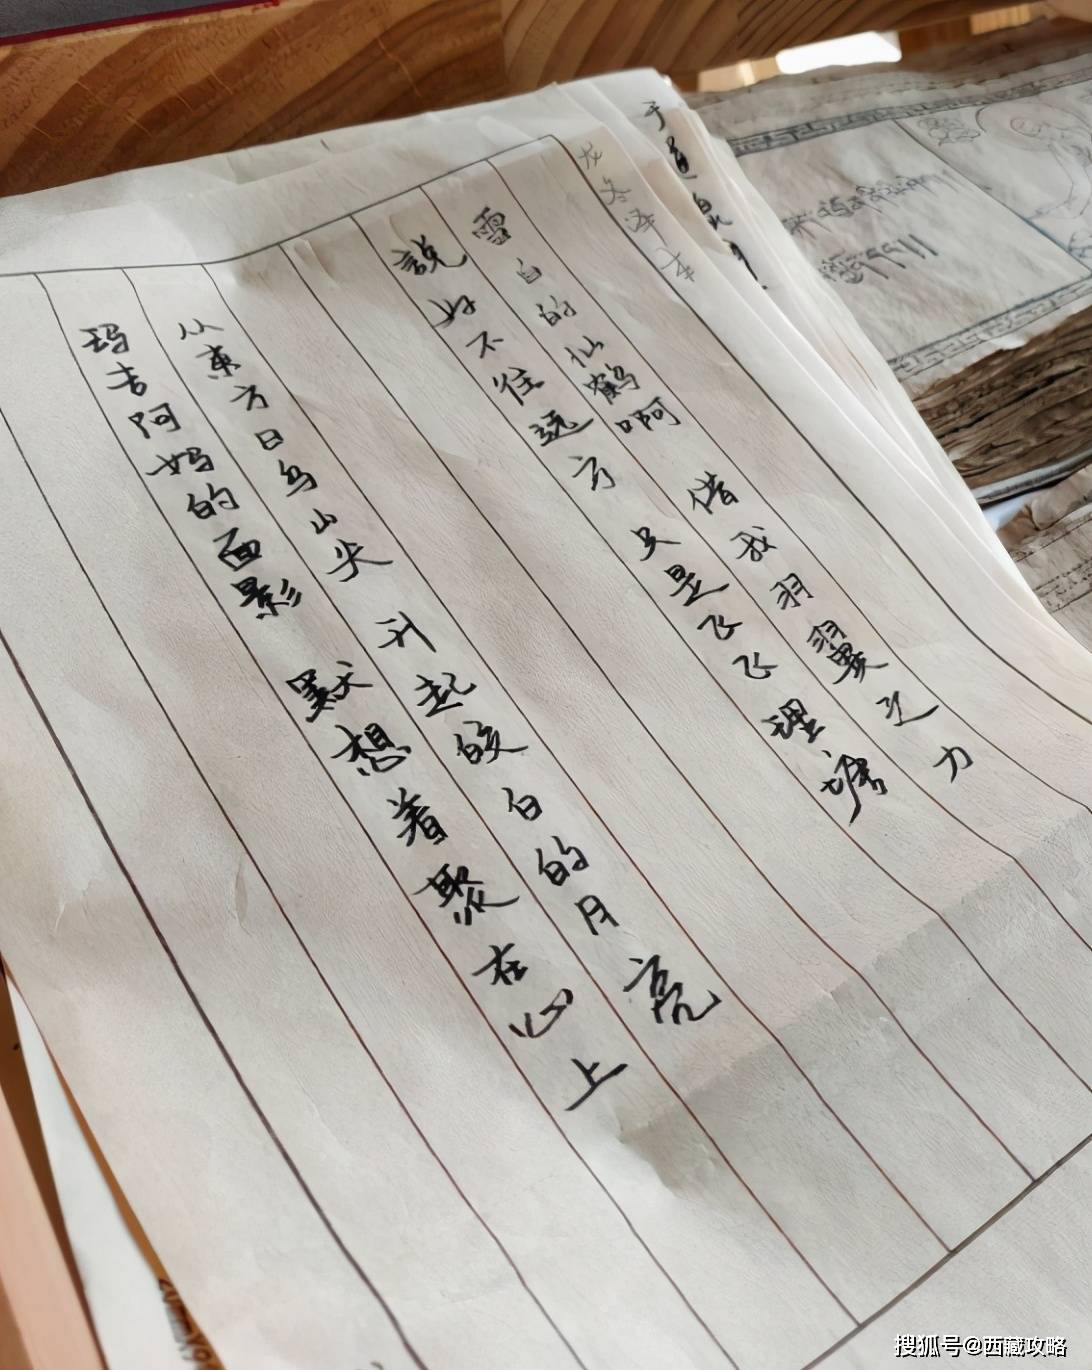 于道泉
龙冬译本
雪白的仙鹤啊 借我羽翼之力
說好不往远方 只是飞飞理塘
从東方日乌山尖 升起皎白的月亮
玛吉阿妈的面影 默想着聚在心上
搜狐号@西藏攻略